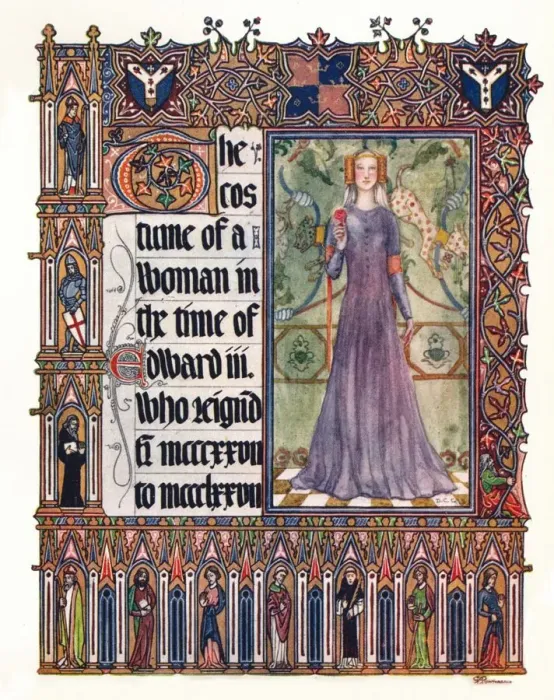 The
cos
tume of a
Woman in
the time of
Edward iii.
Who reignd
mcccxxvii
to mccclxxvii